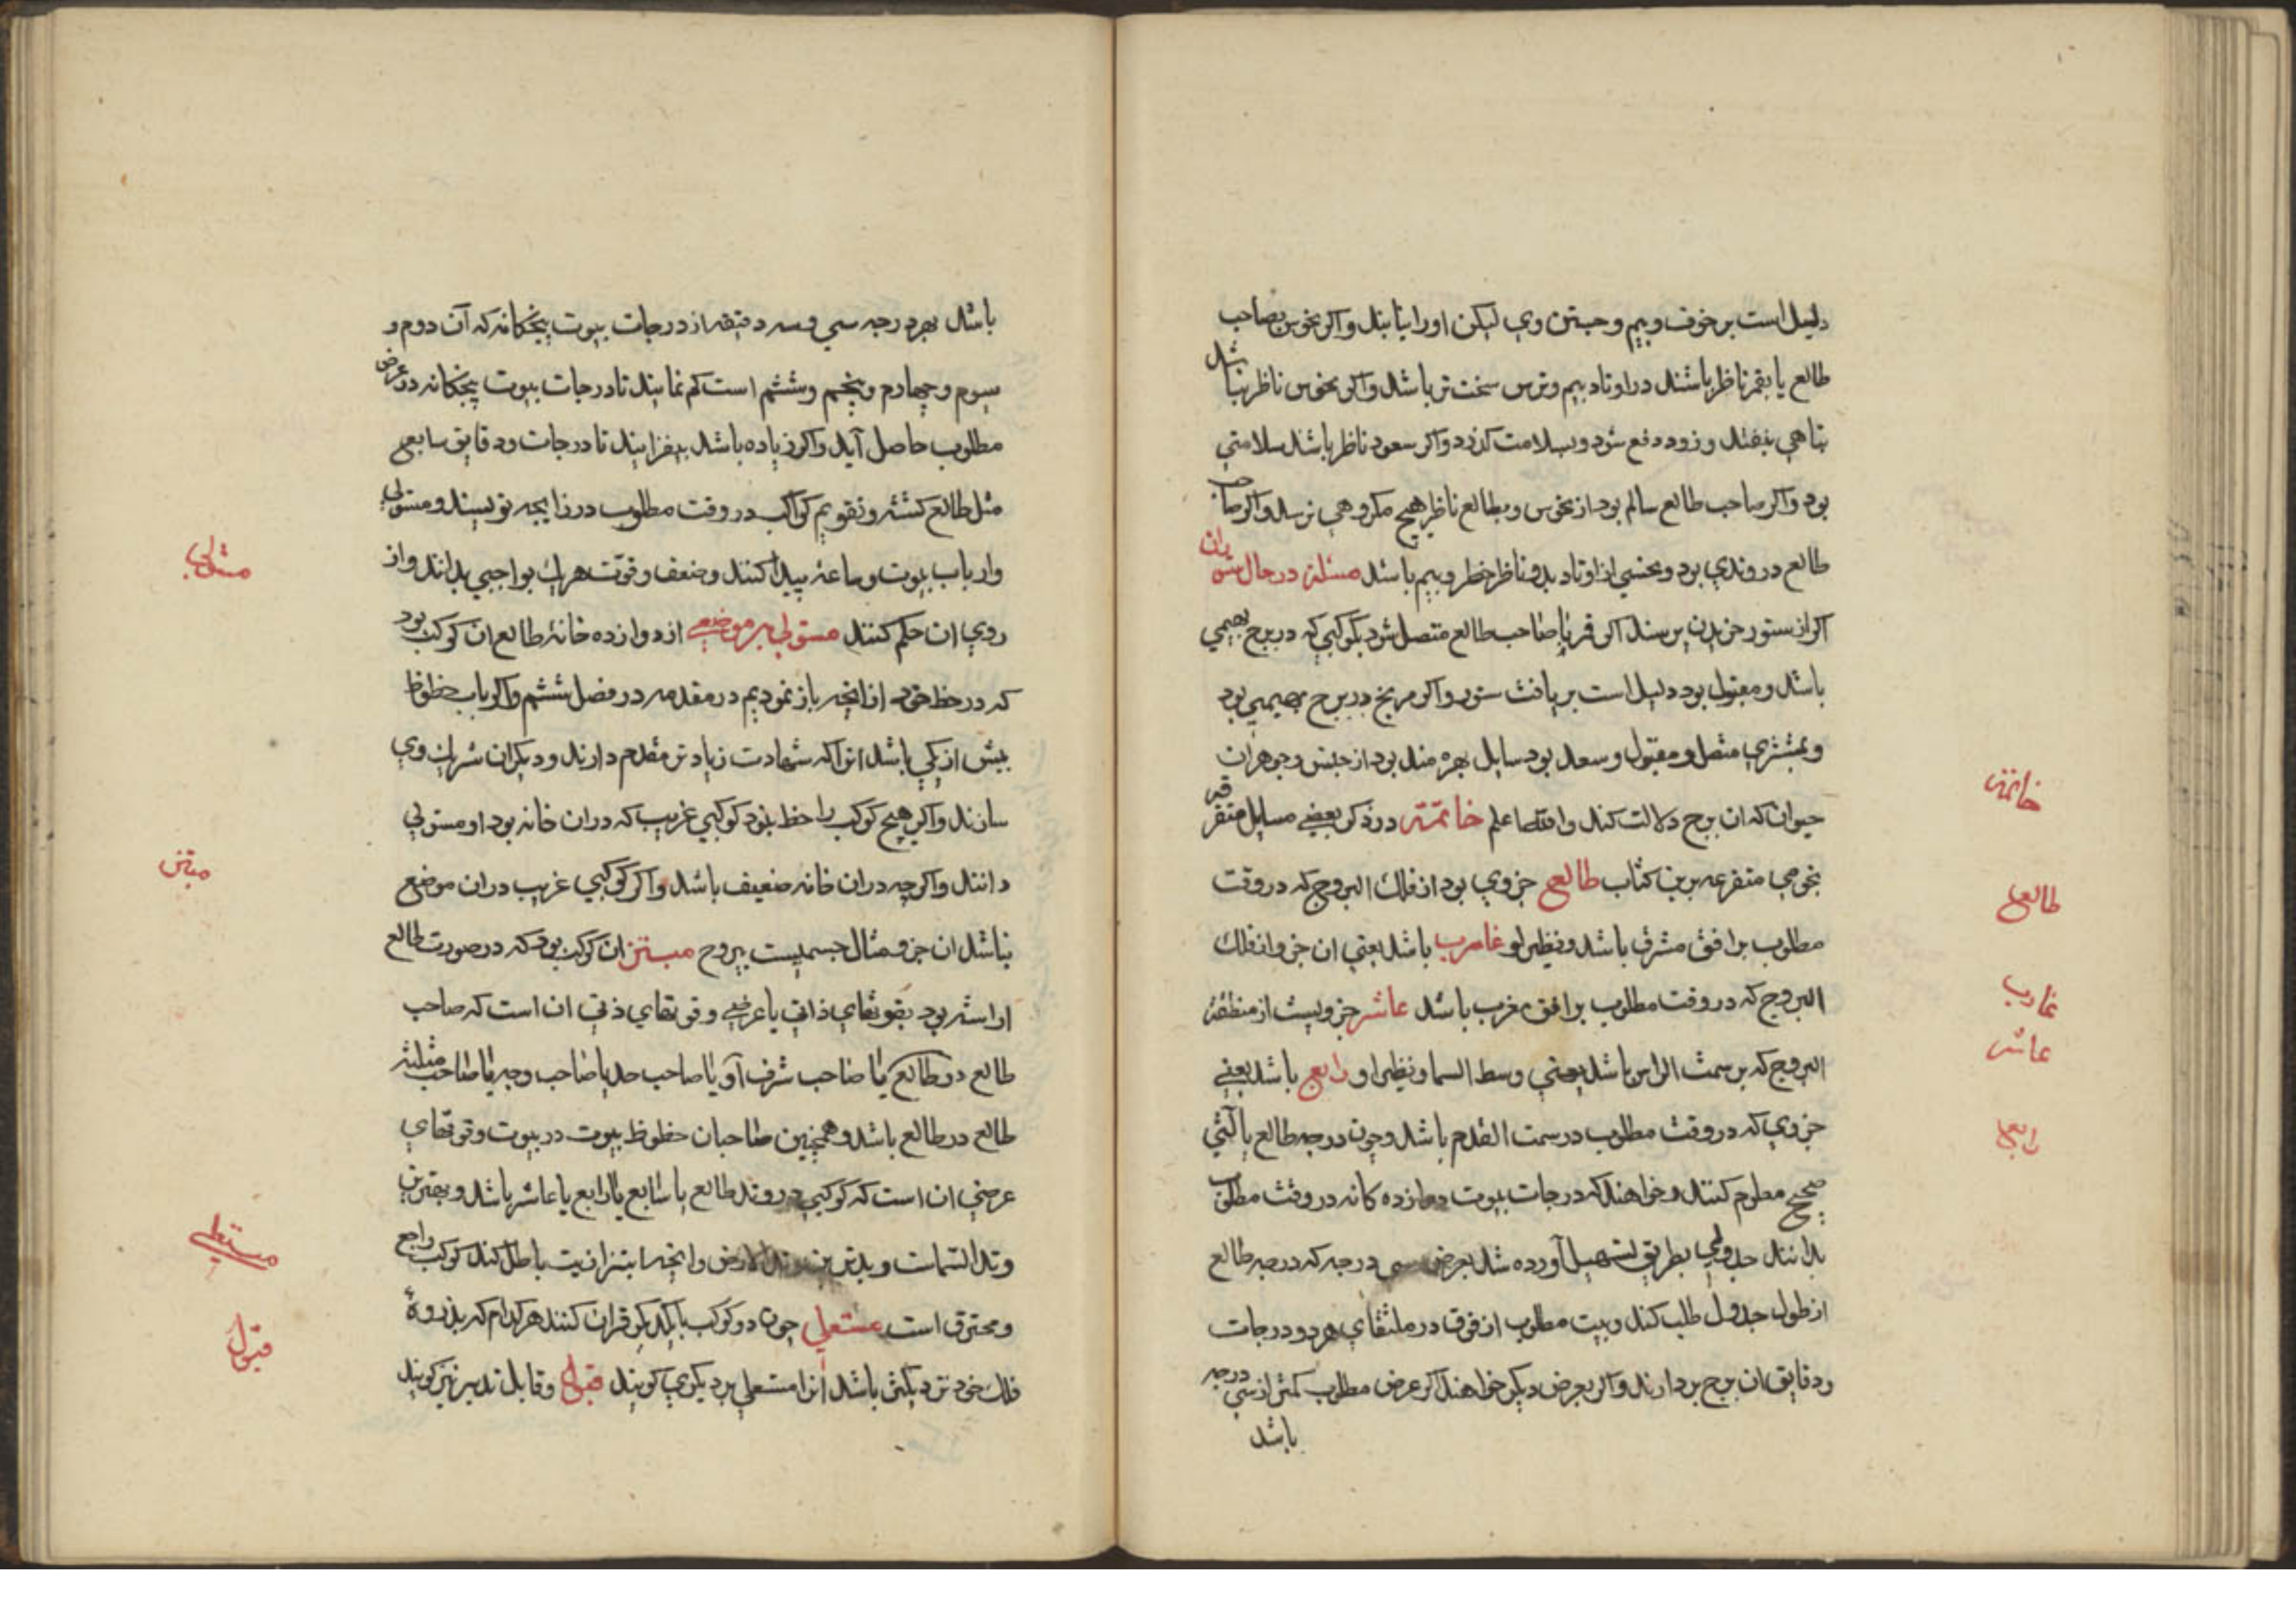 دلیل است بر خوف و بیم و جستن وی لیکن او را نیابند و اکر نحوس بصاحب
طالع یا بقمر ناظر باشند در اوتاد بیم و ترس سخت تر باشد و اکر نحوس ناظر نباشد
تباهی نیفتد و زود دفع شود و بسلامت کذرد و اکر سعود ناظر باشند سلامتی
بود و اکر صاحب طالع سالم بود از نحوس و بطالع ناظر هیچ مکروهی نرسد و اکر صاحب
طالع در وتدی بود و نحسی از اوتاد بدو ناظر خطر و بیم باشد مسئلة در حال ستوران
اکر از ستور خریدن پرسند اکر قمر یا صاحب طالع متصل شود بکوکبی که در برج بهیمی
باشد و مقبول بود دلیل است بر یافت ستور و اکر مریخ در برج بهیمی بود
و بمشتری متصل و مقبول و سعد بود سایل بهره مند بود از جنس و جوهر آن
حیوان که ان برج دلالت کند والله اعلم خاتمة در ذکر بعضی مسایل متفرقه
نجومی متفرعه برین کتاب طالع جزوی بود از فلک البروج که در وقت
مطلوب بر افق مشرق باشد و نظیر او غارب باشد یعنی ان جزو از فلک
البروج که در وقت مطلوب بر افق مغرب باشد عاشر جزویست از منطقة
البروج که بر سمت الراس باشد یعنی وسط السما و نظیر او رابع باشد یعنی
جزوی که در وقت مطلوب در سمت القدم باشد و چون درجه طالع بالتی
صحیح معلوم کنند و خواهند که درجات بیوت دوازده کانه در وقت مطلوب
بدانند جدولی بطریق تسهیل آورده شد بعرض سی درجه که درجه طالع
از طول جدول طلب کند و بیت مطلوب از فوق در ملتقای هر دو درجات
و دقایق ان برج بردارند و اکر بعرض دیکر خواهند اکر عرض مطلوب کمتر از سی درجه
باشد
خاتمة
طالع
غارب
عاشر
رابع
باشد بهر درجه سی و سه دقیقه از درجات بیوت پنجکانه که آن دوم و
سیوم و چهارم و پنجم و ششم است کم نمایند تا درجات بیوت پنجکانه در عرض
مطلوب حاصل آید و اکر زیاده باشد بیفزایند تا درجات و دقایق سابع
مثل طالع کشته و تقویم کواکب در وقت مطلوب در زایجه نویسند و مستولی
و ارباب بیوت و ساعة پیدا کنند و ضعف و قوّت هر یک بواجبی بدانند و از
روی ان حکم کنند مستولی بر موضعی از دوازده خانهٔ طالع ان کوکب بود
که در حظ خود از انچه باز نمودیم در مقدمه در فصل ششم و اکر باب حظوظ
بیش از یکی باشد انرا که شهادت زیادتر مقدم دارند و دیکران شریک وی
سازند و اکر هیچ کوکب را حظ نبود کوکبی غریب که در ان خانه بود او مستولی
دانند و اکر چه در ان خانه ضعیف باشد و اکر کوکبی غریب در ان موضع
نباشد ان جزو مثال جسمیست بیروح مبتز ان کوکب بود که در صورت طالع
اراسته بود بقوتهای ذاتی یا عرضی و قوتهای ذاتی ان است که صاحب
طالع در طالع یا صاحب شرف آو یا صاحب حد یا صاحب وجه یا صاحب مثلثه
طالع در طالع باشد و همچنین صاحبان حظوظ بیوت در بیوت و قوتهای
عرضی ان است که کوکبی در وتد طالع یا سابع یا رابع یا عاشر باشد و بهترین
وتد السّماست و بدترین وتد الارض و انچه ابتزازیت باطل کند کوکب راجع
و محترق است مستعلی چون دو کوکب با یکدیکر قران کنند هر کدام که بذروهٔ
فلک خود نزدیکتر باشد انرا مستعلی بر دیکری کویند قبول و قابل تدبیر نیز کویند
مستولی
مبتز
مستعلی
قبول